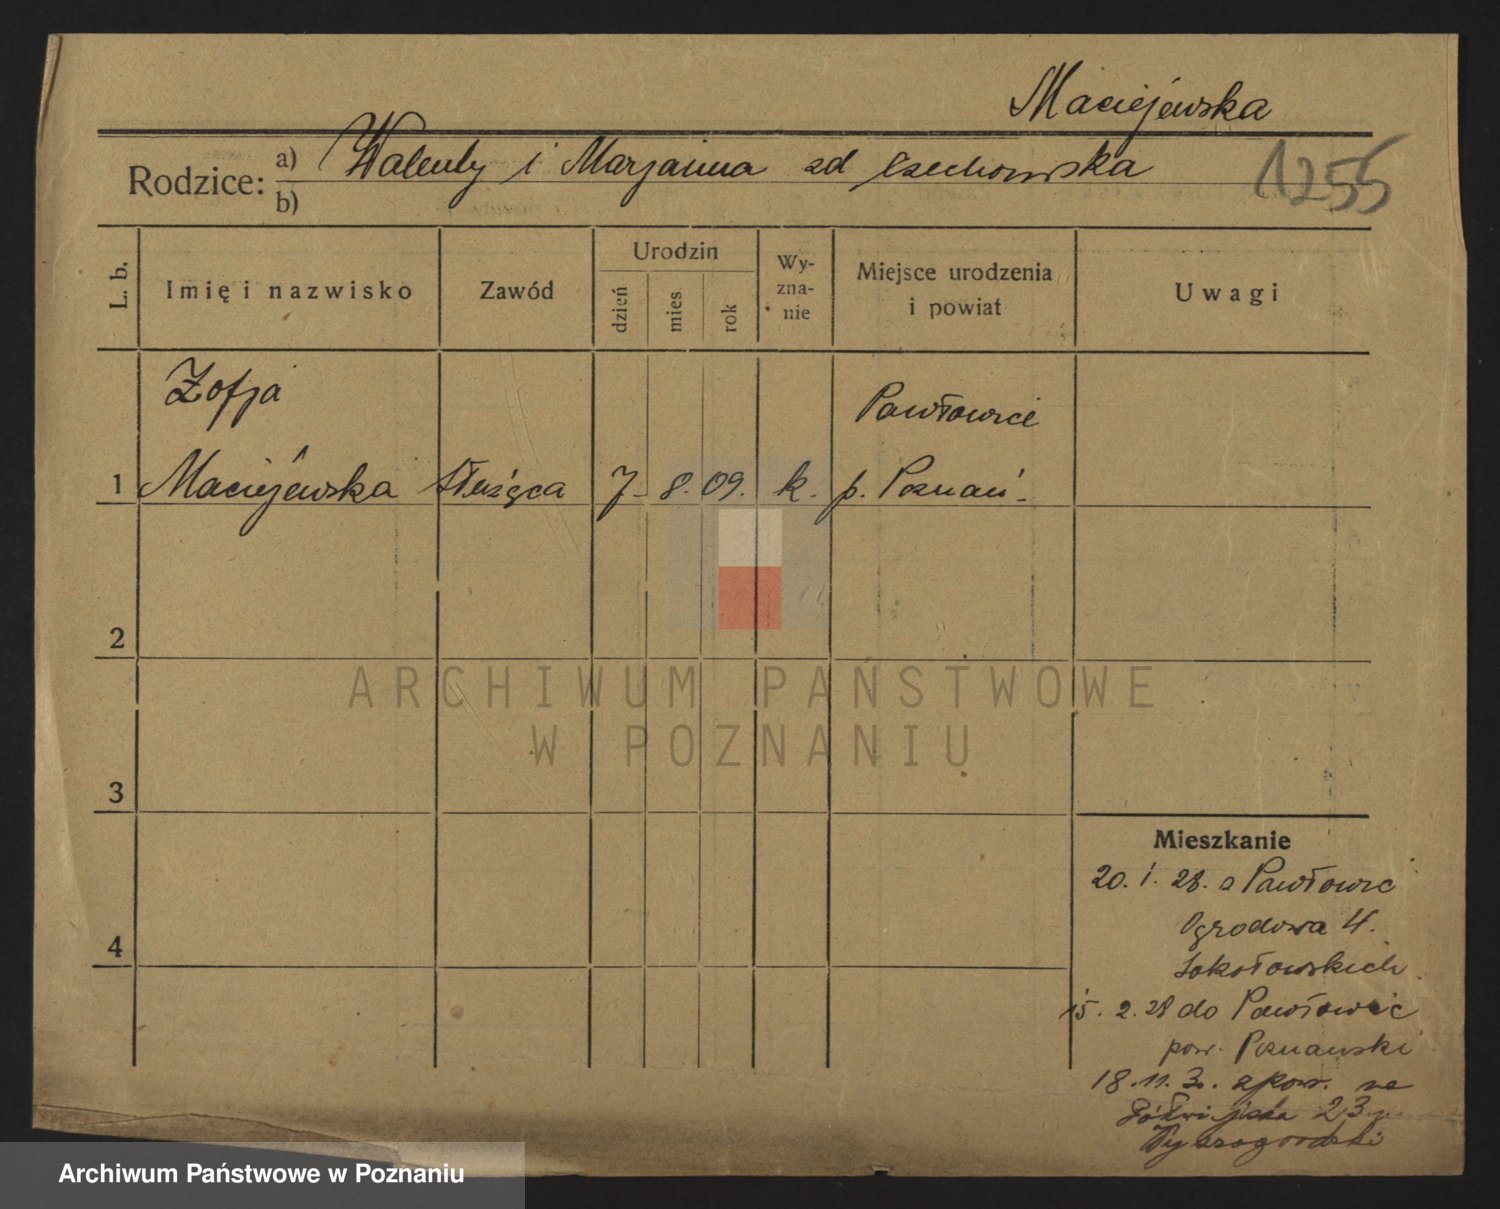 Maciejewska
Rodzice: a) Walenty i Marjanna zd Czechowska
b)
1255
L. b.
Imię i nazwisko
Zawód
Urodzin
dzień
mies
rok
Wy-
zna-
nie
Miejsce urodzenia
i powiat
Uwagi
Zofja
Pawłowice
1 Maciejewska służąca 7. 8. 09. k. p. Poznań.
2
3
4
ARCHIWUM PAŃSTWOWE
W POZNANIU
Mieszkanie
20. 1. 28. z Pawłowic
Ogrodowa 4.
Sokołowskich
15. 2. 28 do Pawłowic
pow. Poznański
18. 11. 3
23
Archiwum Państwowe w Poznaniu